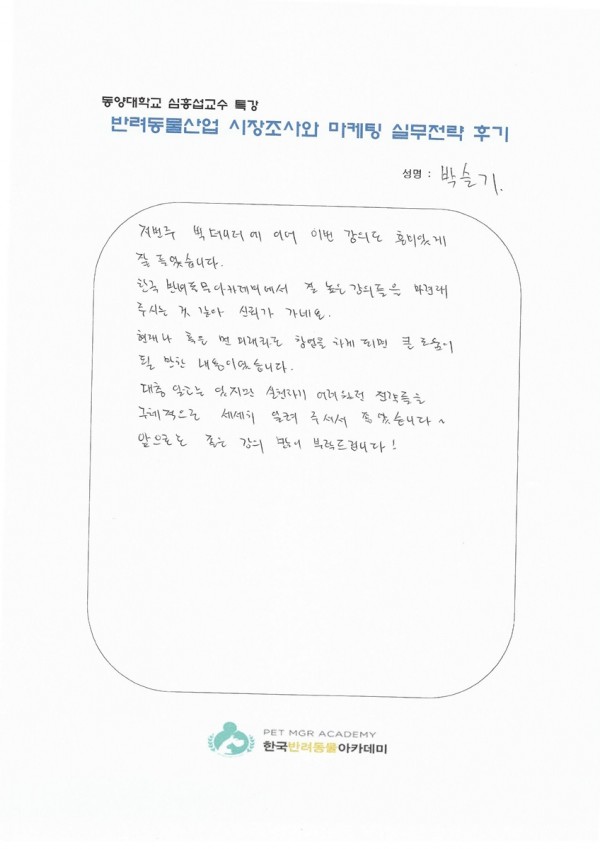 동양대학교 심홍섭교수 특강
반려동물산업 시장조사와 마케팅 실무전략 후기
성명 : 박슬기.
저번주 빅데이터에 이어 이번 강의도 흥미있게
잘 들었습니다.
한국 반려동물아카데미에서 질 높은 강의들을 마련해
주시는 것 같아 신뢰가 가네요.
현재나 혹은 먼 미래라도 창업을 하게 되면 큰 도움이
될 만한 내용이었습니다.
대충 알고는 있지만 실천하기 어려웠던 전략들을
구체적으로 세세히 알려 주셔서 좋았습니다~
앞으로도 좋은 강의 많이 부탁드립니다!
PET MGR ACADEMY
한국반려동물아카데미